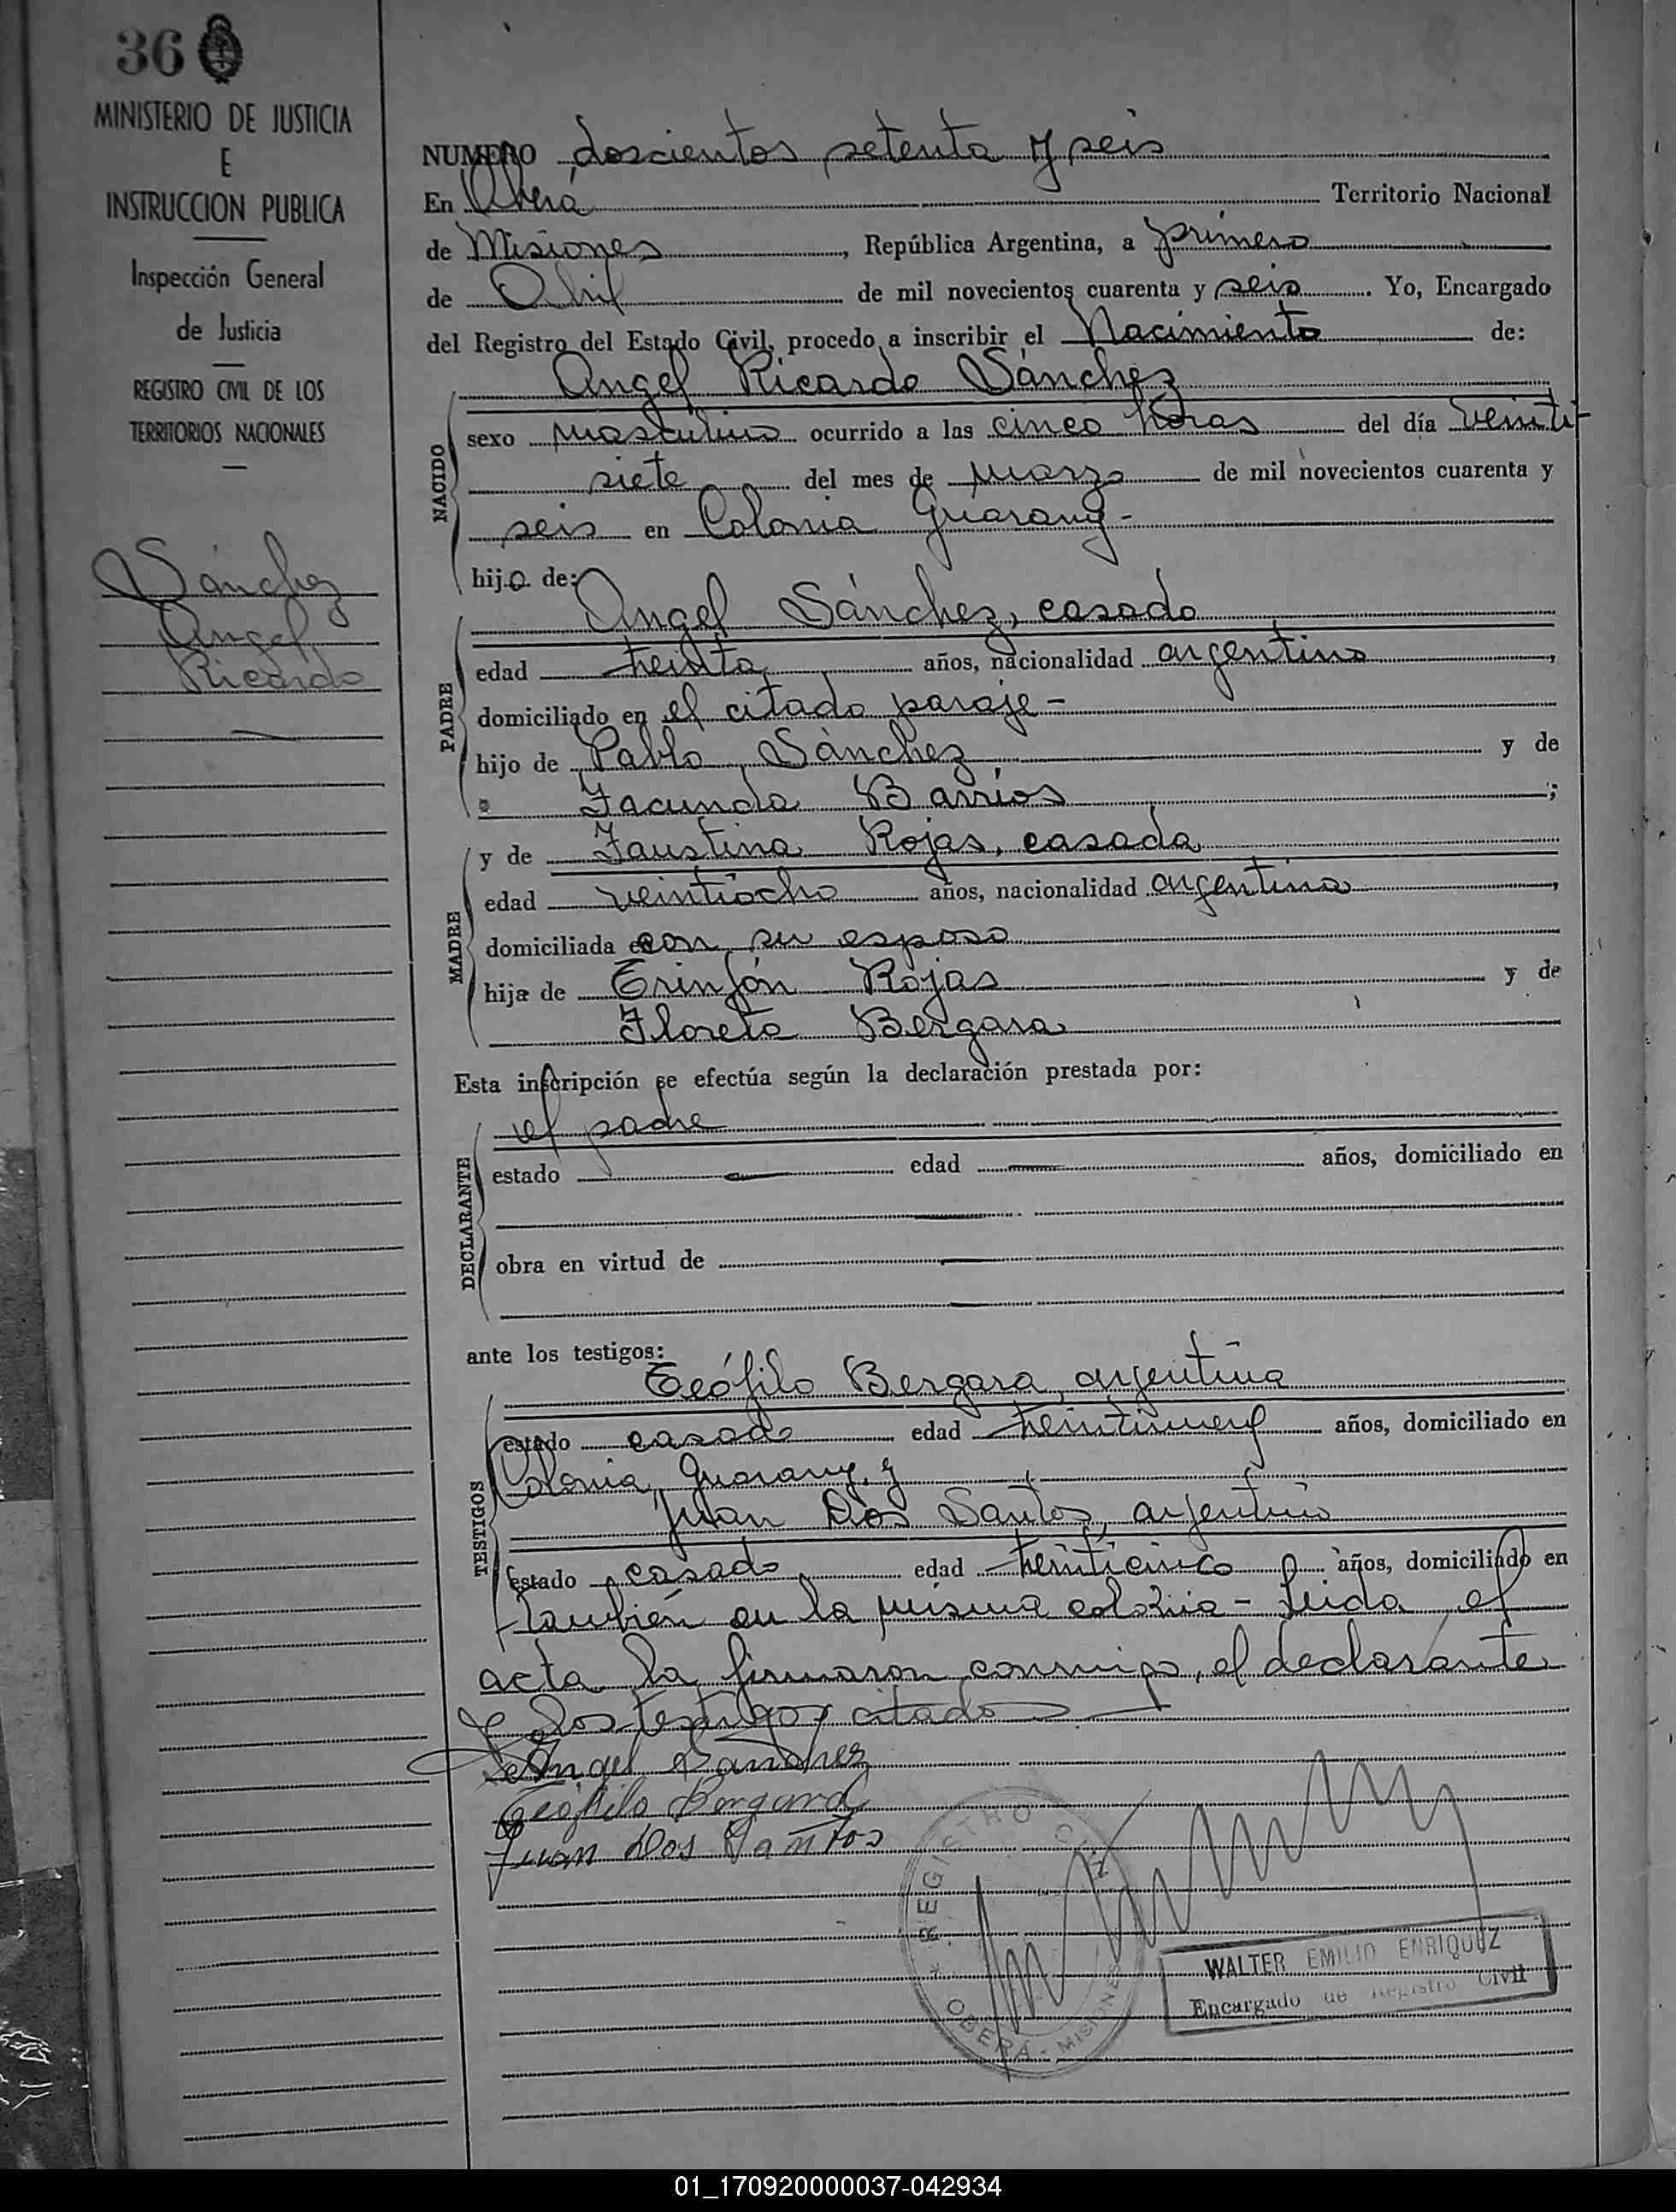 36
MINISTERIO DE JUSTICIA
E
INSTRUCCION PUBLICA
Inspección General
de Justicia
REGISTRO CIVIL DE LOS
TERRITORIOS NACIONALES
Sánchez
Angel
Ricardo
NUMERO doscientos setenta y seis
En Oberá Territorio Nacional
de Misiones, República Argentina, a primero
de Abril de mil novecientos cuarenta y seis. Yo, Encargado
del Registro del Estado Civil, procedo a inscribir el Nacimiento de:
Angel Ricardo Sánchez
NACIDO
sexo masculino ocurrido a las cinco horas del día veinti-
siete del mes de marzo de mil novecientos cuarenta y
seis en Colonia Guarany-
hijo de:
Angel Sánchez, casado
PADRE
edad treinta años, nacionalidad argentino,
domiciliado en el citado paraje-
hijo de Pablo Sánchez y de
Facunda Barrios;
MADRE
y de Faustina Rojas, casada
edad veintiocho años, nacionalidad argentina,
domiciliada con su esposo
hija de Trinfón Rojas y de
Floreta Bergara
Esta inscripción se efectúa según la declaración prestada por:
DECLARANTE
el padre
estado — edad — años, domiciliado en
obra en virtud de —
ante los testigos:
TESTIGOS
Teófilo Bergara, argentino
estado casado edad años, domiciliado en
Colonia Guarany, y
Juan Dos Santos, argentino
estado casado edad treinticinco años, domiciliado en
también en la misma colonia- Leida el
acta la firmaron conmigo, el declarante
y los testigos citados
Angel Sanchez
Teofilo Bergara
Juan Dos Santos
REGISTRO CIVIL
* OBERÁ - MISIONES
WALTER EMILIO ENRIQUEZ
Encargado de Registro Civil
01_170920000037-042934